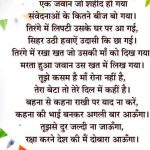 एक जवान जो शहीद हो गया
संवेदनाओं के कितने बीज बो गया।
तिरंगे में लिपटी उसके घर पर आ गई,
सिहर उठी हवाएँ उदासी कि छा गई।
तिरंगे में रखा खत जो उसकी माँ को दिख गया
मरता हुआ जवान उस खत में लिख गया।
तूझे कसम है माँ रोना नहीं है,
तेरा बेटा तो तेरे दिल में कहीं है।
बहना से कहना राखी पर याद ना करें,
कहना की भाई बनकर अगली बार आऊँगा।
तूझसे दुर जल्दी ना जाऊँगा,
रक्षा करने देश की मैं दोबारा आऊँगा।